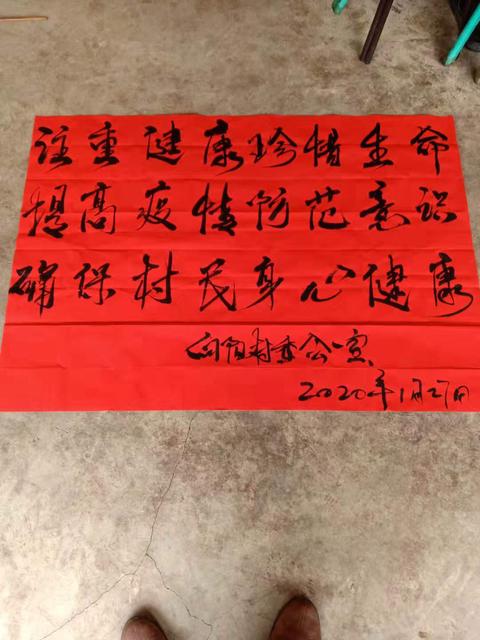 注重健康珍惜生命
提高疫情防范意识
确保村民身心健康
向阳村委会宣
2020年1月27日